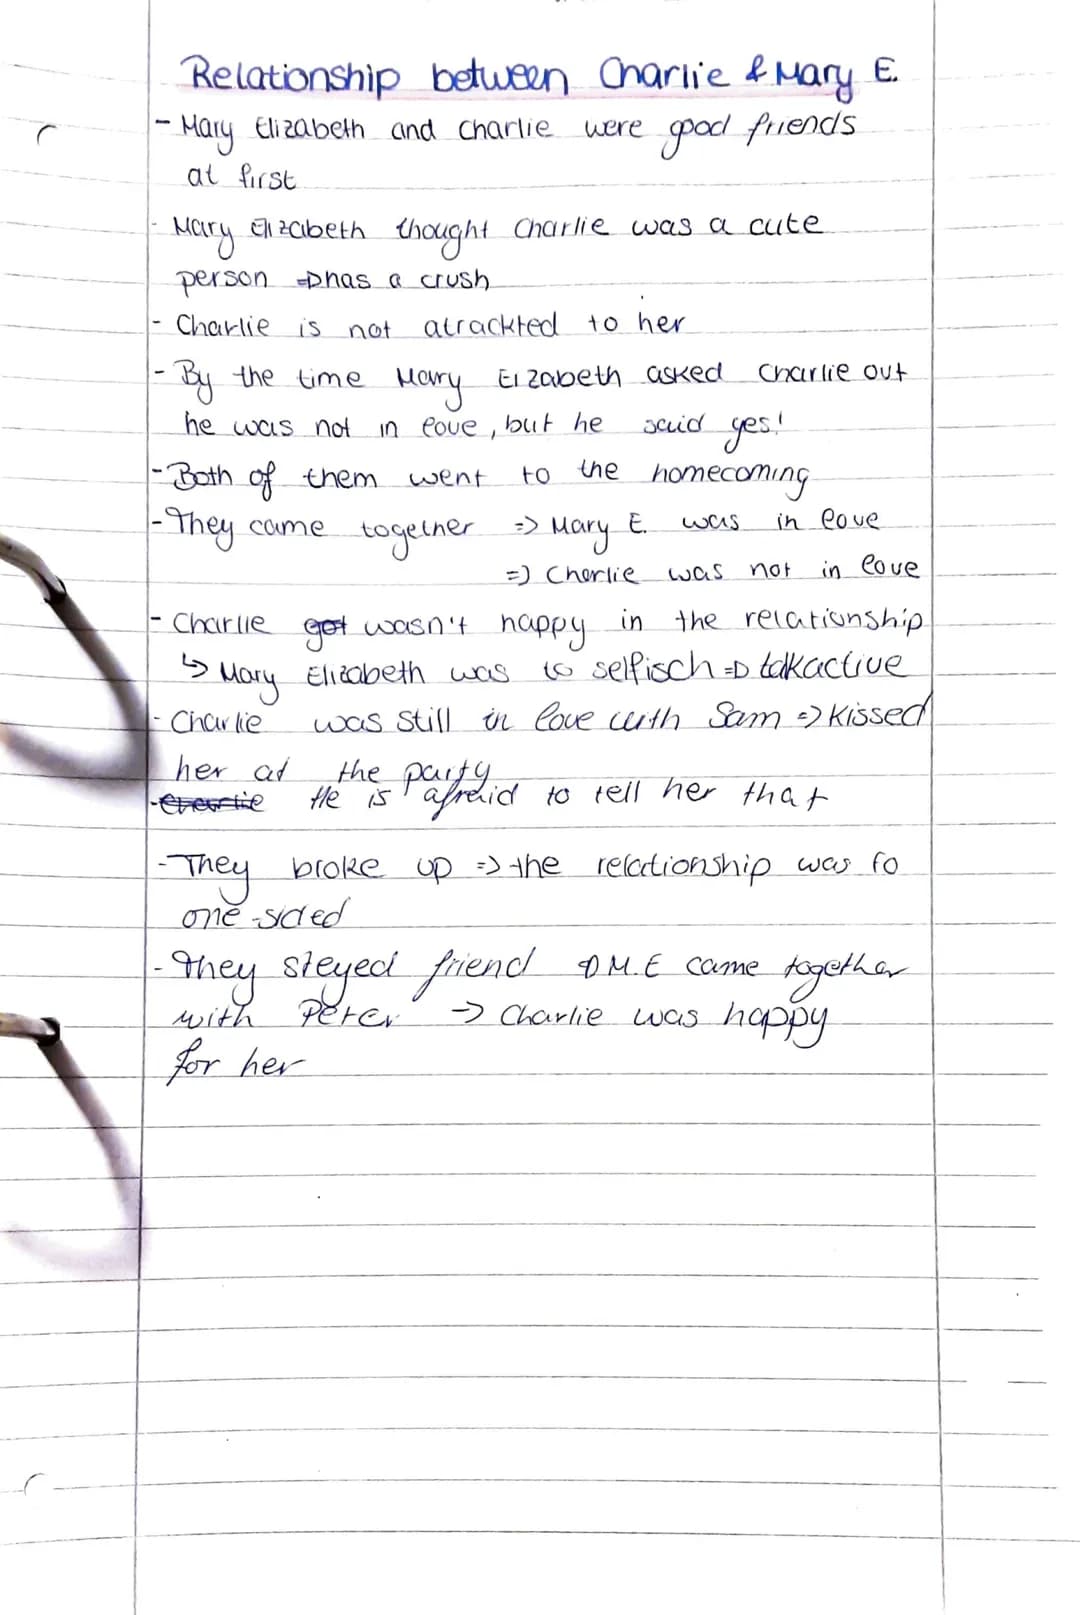 Relationship between Charlie & Mary E.
- Mary Elizabeth and Charlie were good friends
at first
- Mary Elizabeth thought Charlie was a cute
person => has a crush
- Charlie is not atrackted to her
- By the time Mary Elizabeth asked Charlie out
he was not in love, but he said yes!
- Both of them went to the homecoming
- They came together => Mary E. was in love
=> Charlie was not in love
- Charlie got wasn't happy in the relationship
↳ Mary Elizabeth was to selfisch => talkactive
- Charlie was still in love with Sam => kissed
her at the party
- He is afraid to tell her that
- They broke up => the relationship was to
one-sided
- They steyed friend => M.E came together
with Peter -> Charlie was happy
for her